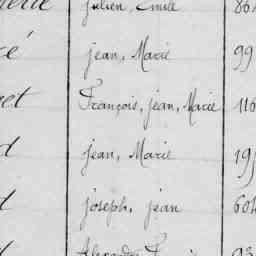 Julien, Emile 864
cé jean, Marie 99
et François, jean, Marie 116
d jean, Marie 19
joseph, jean 604
Alexandre